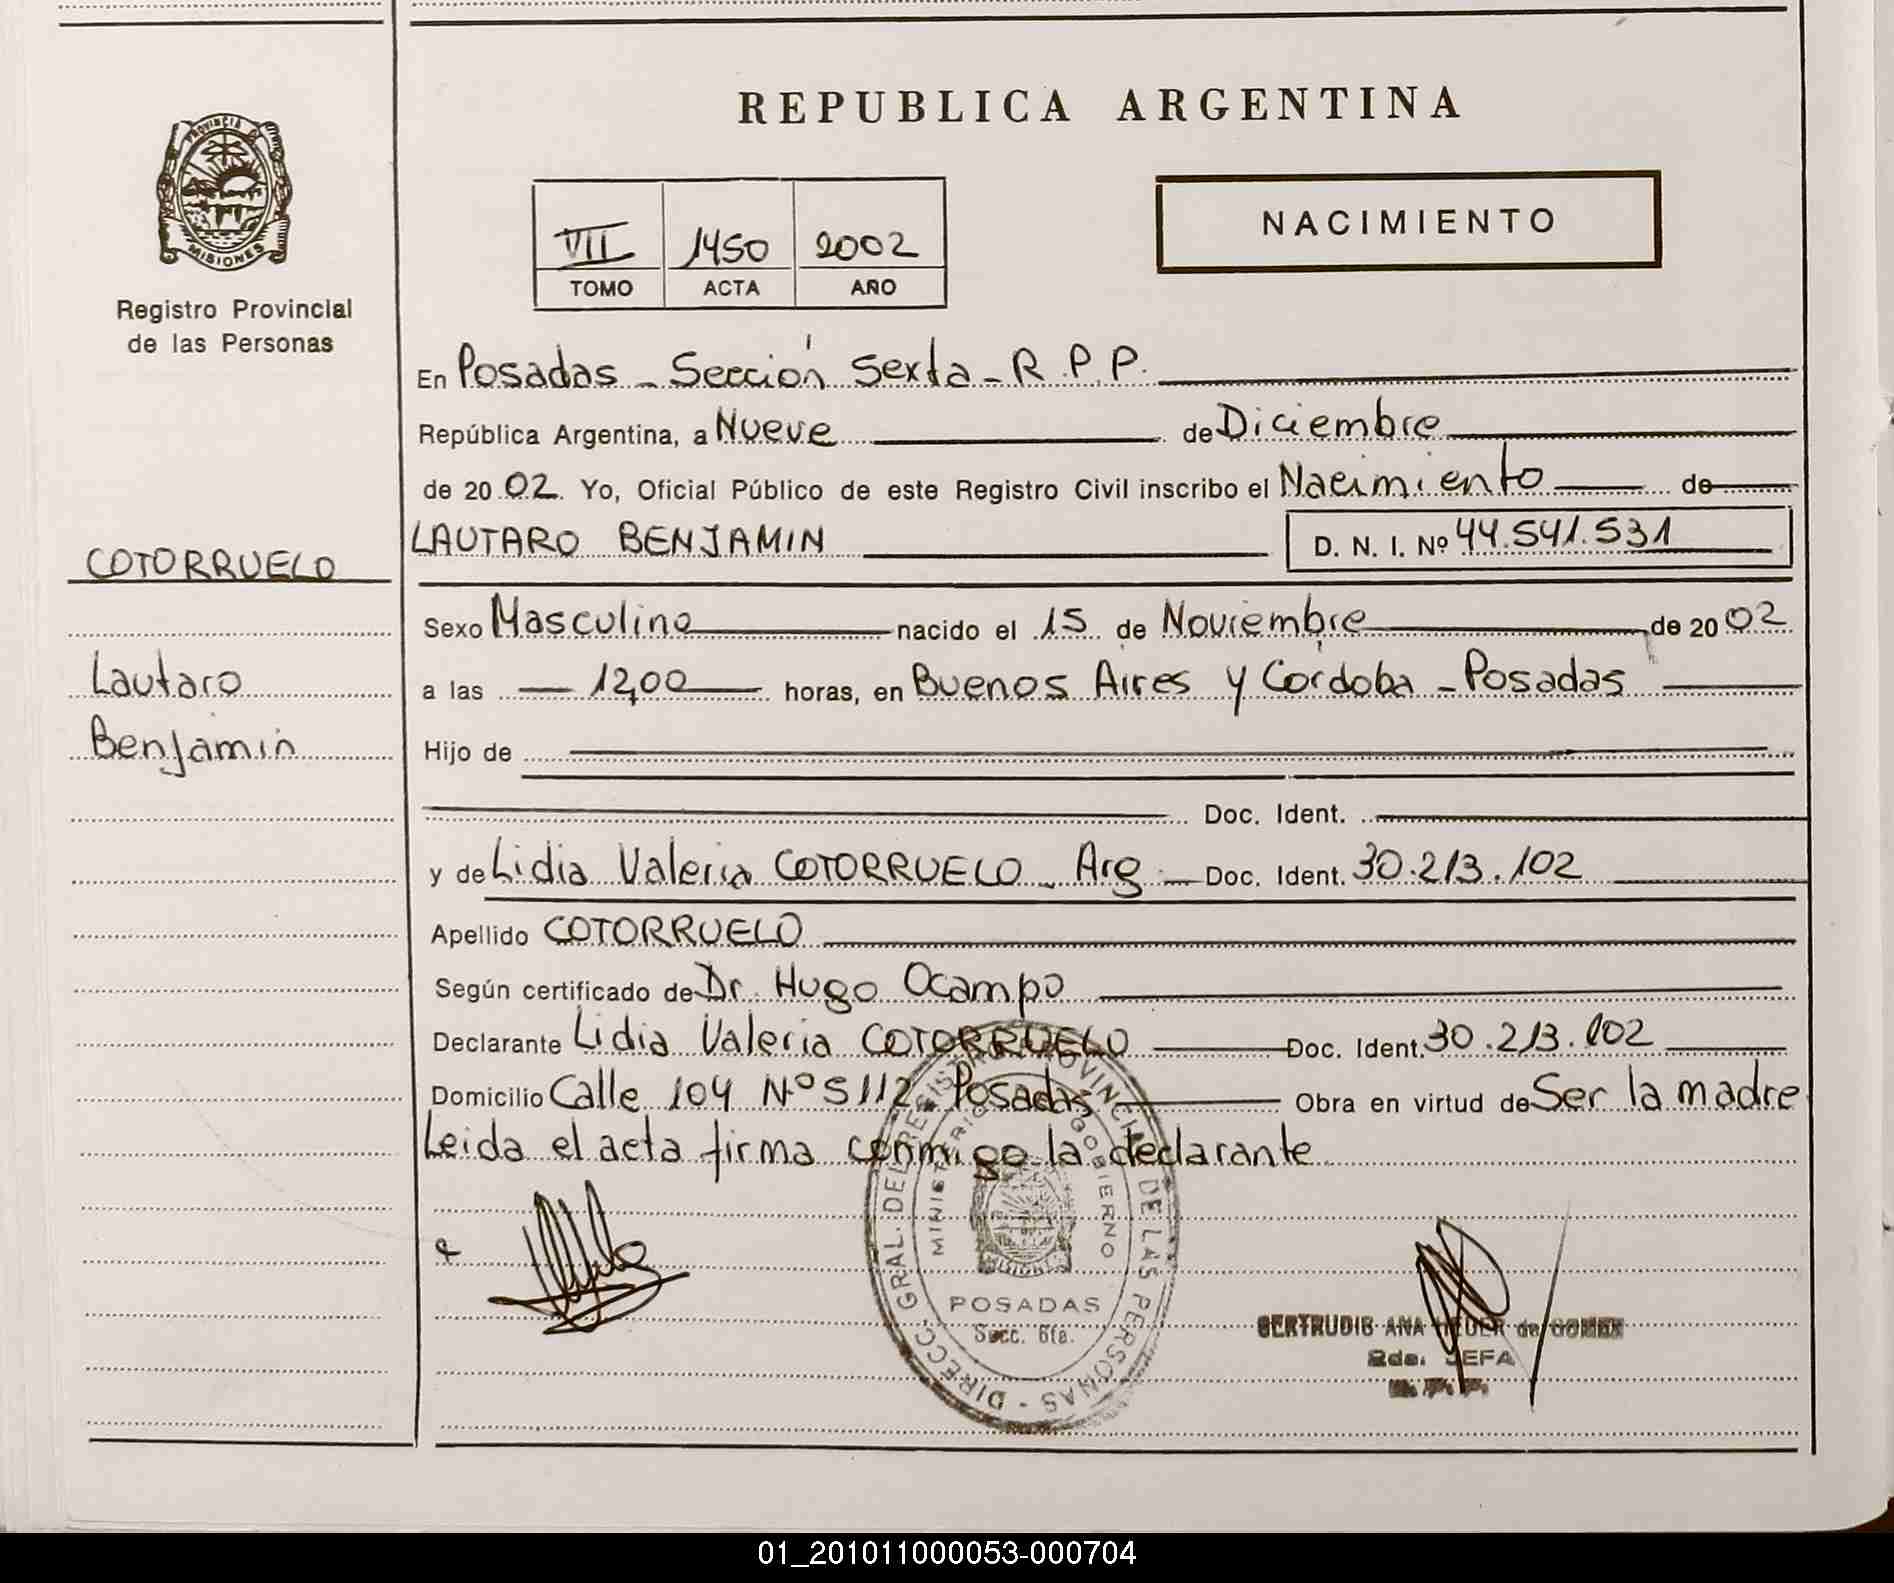 REPUBLICA ARGENTINA
PROVINCIA D
MISIONES
Registro Provincial
de las Personas
VII 1450 2002
TOMO ACTA AÑO
NACIMIENTO
En Posadas - Sección Sexta - R.P.P.
República Argentina, a Nueve de Diciembre
de 20 02. Yo, Oficial Público de este Registro Civil inscribo el Nacimiento de
LAUTARO BENJAMIN D. N. I. Nº 44.541.531
COTORRUELO
Lautaro
Benjamin
Sexo Masculino nacido el 15 de Noviembre de 20 02
a las 12,00 horas, en Buenos Aires y Cordoba - Posadas
Hijo de
Doc. Ident.
y de Lidia Valeria COTORRUELO - Arg - Doc. Ident. 30.213.102
Apellido COTORRUELO
Según certificado de Dr. Hugo Ocampo
Declarante Lidia Valeria COTORRUELO Doc. Ident. 30.213.102
Domicilio Calle 104 Nº 5112 Posadas Obra en virtud de Ser la madre
Leida el acta firma conmigo la declarante
DIRECC. GRAL. DEL REGISTRO PROVINCIAL DE LAS PERSONAS -
MINISTERIO GOBIERNO
MISIONES
POSADAS
Secc. 6ta.
GERTRUDIS ANA HEUER de GOMEZ
2da. JEFA
01_201011000053-000704